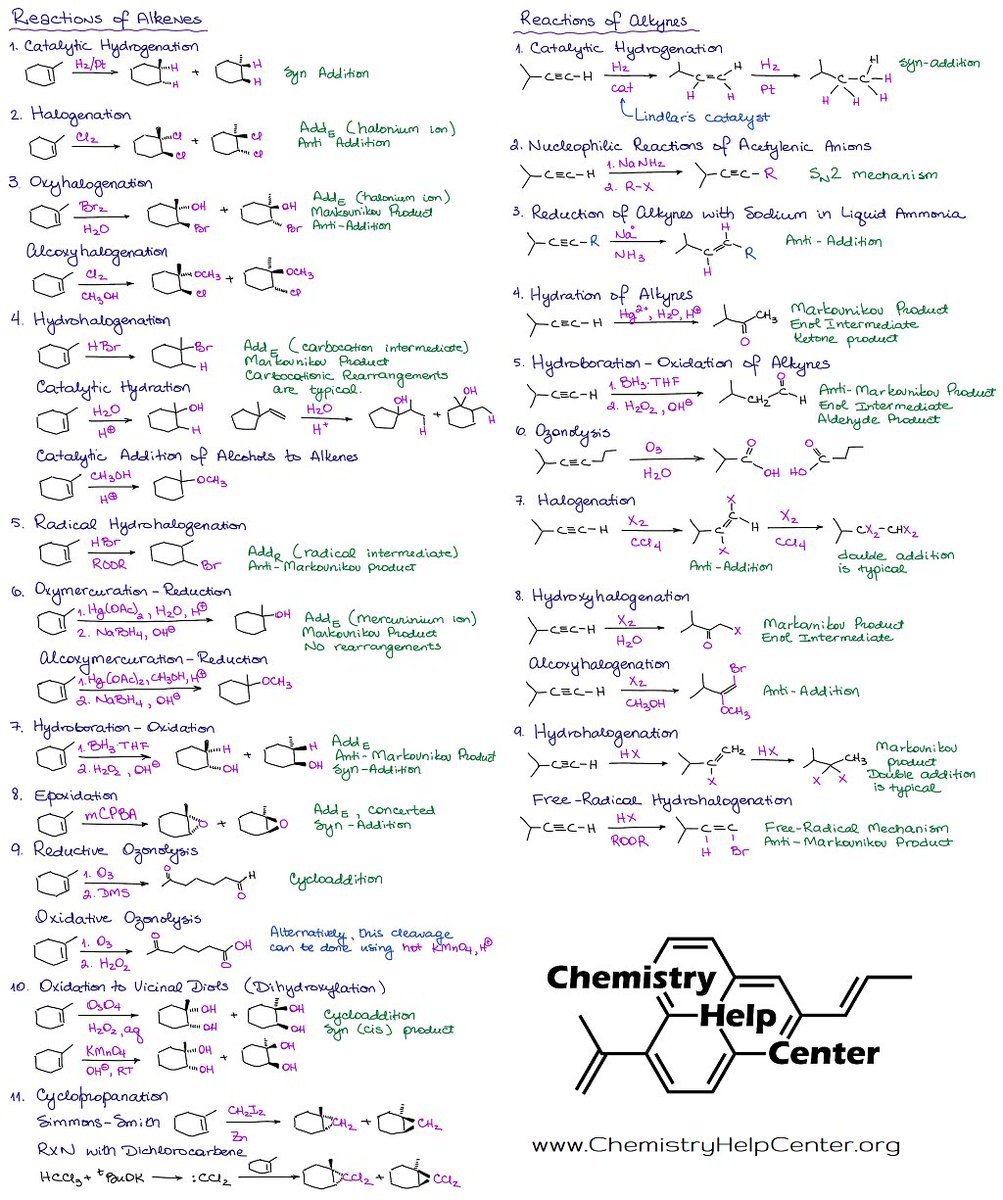 Reactions of Alkenes
1. Catalytic Hydrogenation
H2/Pt
H
H
+
H
H
Syn Addition
2. Halogenation
Cl2
Cl
Cl
+
Cl
Cl
AddE (halonium ion)
Anti Addition
3. Oxyhalogenation
Br2
H2O
OH
Br
+
OH
Br
AddE (halonium ion)
Markovnikov Product
Anti-Addition
Alcoxyhalogenation
Cl2
CH3OH
OCH3
Cl
+
OCH3
Cl
4. Hydrohalogenation
HBr
Br
H
AddE (carbocation intermediate)
Markovnikov Product
Carbocationic Rearrangements
are typical.
Catalytic Hydration
H2O
H⊕
OH
H
H2O
H+
OH
H
+
OH
H
Catalytic Addition of Alcohols to Alkenes
CH3OH
H⊕
OCH3
5. Radical Hydrohalogenation
HBr
ROOR
Br
AddR (radical intermediate)
Anti-Markovnikov product
6. Oxymercuration-Reduction
1. Hg(OAc)2, H2O, H⊕
2. NaBH4, OH⊖
OH
AddE (mercurinium ion)
Markovnikov Product
No rearrangements
Alcoxymercuration-Reduction
1. Hg(OAc)2, CH3OH, H⊕
2. NaBH4, OH⊖
OCH3
7. Hydroboration-Oxidation
1. BH3·THF
2. H2O2, OH⊖
H
OH
+
H
OH
AddE
Anti-Markovnikov Product
Syn-Addition
8. Epoxidation
mCPBA
O
+
O
AddE, concerted
Syn-Addition
9. Reductive Ozonolysis
1. O3
2. DMS
O
H
O
Cycloaddition
Oxidative Ozonolysis
1. O3
2. H2O2
O
OH
O
Alternatively, this cleavage
can be done using hot KMnO4, H⊕
10. Oxidation to Vicinal Diols (Dihydroxylation)
OsO4
H2O2, aq
OH
OH
+
OH
OH
Cycloaddition
Syn (cis) product
KMnO4
OH⊖, RT
OH
OH
+
OH
OH
11. Cyclopropanation
Simmons-Smith
CH2I2
Zn
CH2
+
CH2
RXN with Dichlorocarbene
HCCl3 + tBuOK → :CCl2
CCl2
+
CCl2
Reactions of Alkynes
1. Catalytic Hydrogenation
C≡C-H
H2
cat
C=C
H
H
H
H2
Pt
H
C-C-H
H
H
H
syn-addition
Lindlar's catalyst
2. Nucleophilic Reactions of Acetylenic Anions
C≡C-H
1. NaNH2
2. R-X
C≡C-R
SN2 mechanism
3. Reduction of Alkynes with Sodium in Liquid Ammonia
C≡C-R
Na°
NH3
H
C=C
R
H
Anti-Addition
4. Hydration of Alkynes
C≡C-H
Hg2+, H2O, H⊕
CH3
O
Markovnikov Product
Enol Intermediate
Ketone product
5. Hydroboration-Oxidation of Alkynes
C≡C-H
1. BH3·THF
2. H2O2, OH⊖
O
CH2
C
H
Anti-Markovnikov Product
Enol Intermediate
Aldehyde Product
6. Ozonolysis
C≡C
O3
H2O
O
C
OH
O
HO
C
7. Halogenation
C≡C-H
X2
CCl4
X
C=C
H
X
X2
CCl4
CX2-CHX2
Anti-Addition
double addition
is typical
8. Hydroxyhalogenation
C≡C-H
X2
H2O
X
O
Markovnikov Product
Enol Intermediate
Alcoxyhalogenation
C≡C-H
X2
CH3OH
Br
OCH3
Anti-Addition
9. Hydrohalogenation
C≡C-H
HX
CH2
X
HX
CH3
X
X
Markovnikov
product
Double addition
is typical
Free-Radical Hydrohalogenation
C≡C-H
HX
ROOR
C=C
H
Br
Free-Radical Mechanism
Anti-Markovnikov Product
Chemistry
Help
Center
www.ChemistryHelpCenter.org